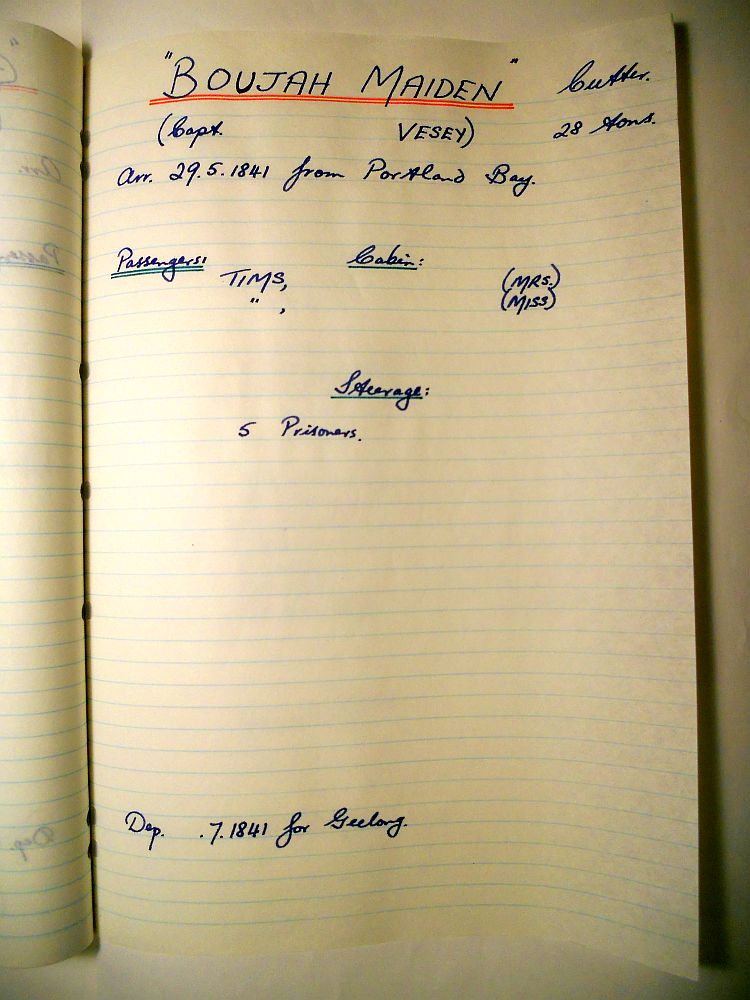 "BOUJAH MAIDEN" Cutter.
(Capt. VESEY) 28 tons.
Arr. 29.5.1841 from Portland Bay.
Passengers: Cabin:
TIMS, (MRS.)
" , (MISS)
Steerage:
5 Prisoners.
Dep. .7.1841 for Geelong.